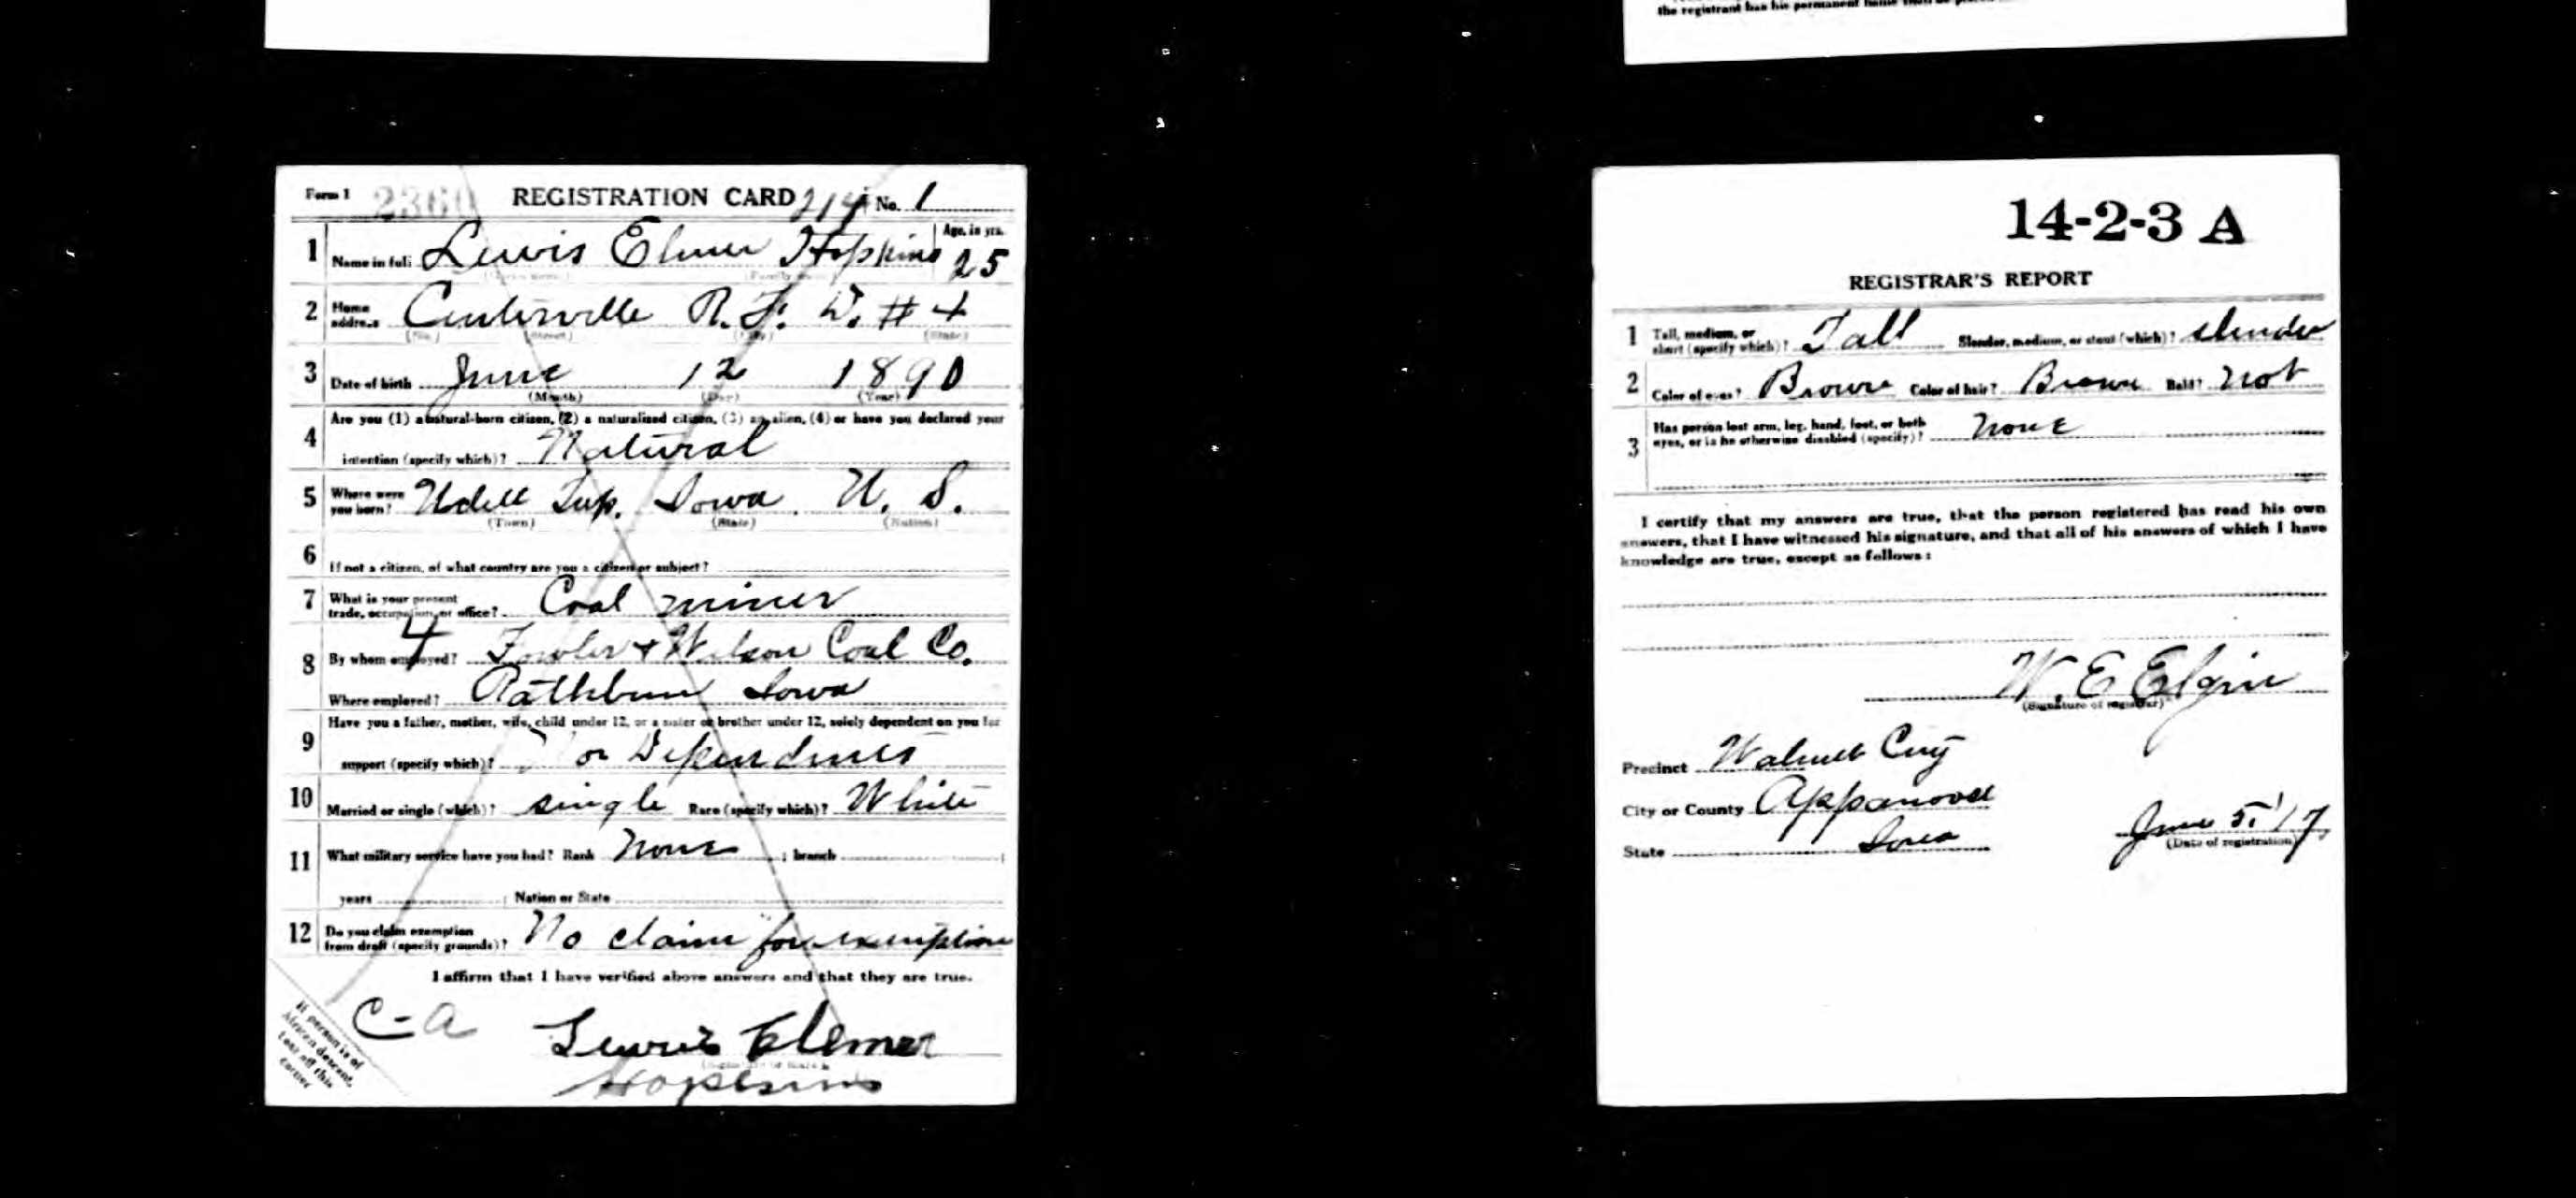 the registrant has his permanent home
Form 1 2360 REGISTRATION CARD 214 No. 1
1 Name in full Lewis Elmer Hopkins Age, in yrs. 25
(Given name) (Family name)
2 Home address Centerville R. F. D. # 4
(No.) (Street) (City) (State)
3 Date of birth June 12 1890
(Month) (Day) (Year)
4 Are you (1) a natural-born citizen, (2) a naturalized citizen, (3) an alien, (4) or have you declared your
intention (specify which)? Natural
5 Where were you born? Udell Twp. Iowa. U. S.
(Town) (State) (Nation)
6 If not a citizen, of what country are you a citizen or subject?
7 What is your present trade, occupation, or office? Coal miner
4
8 By whom employed? Fowler + Wilson Coal Co.
Where employed? Rathbun Iowa
9 Have you a father, mother, wife, child under 12, or a sister or brother under 12, solely dependent on you for
support (specify which)? or Dependents
10 Married or single (which)? single Race (specify which)? White
11 What military service have you had? Rank None ; branch ;
years ; Nation or State
12 Do you claim exemption from draft (specify grounds)? No claim for exemption
I affirm that I have verified above answers and that they are true.
C-A
Lewis Elemer
Hopkins
If person is of
African descent,
tear off this
corner
14-2-3 A
REGISTRAR'S REPORT
1 Tall, medium, or short (specify which)? Tall Slender, medium, or stout (which)? slender
2 Color of eyes? Brown Color of hair? Brown Bald? Not
3 Has person lost arm, leg, hand, foot, or both
eyes, or is he otherwise disabled (specify)? None
I certify that my answers are true, that the person registered has read his own
answers, that I have witnessed his signature, and that all of his answers of which I have
knowledge are true, except as follows:
W. E Elgin
(Signature of registrar)
Precinct Walnut City
City or County Appanoose
State Iowa
June 5, '17
(Date of registration)